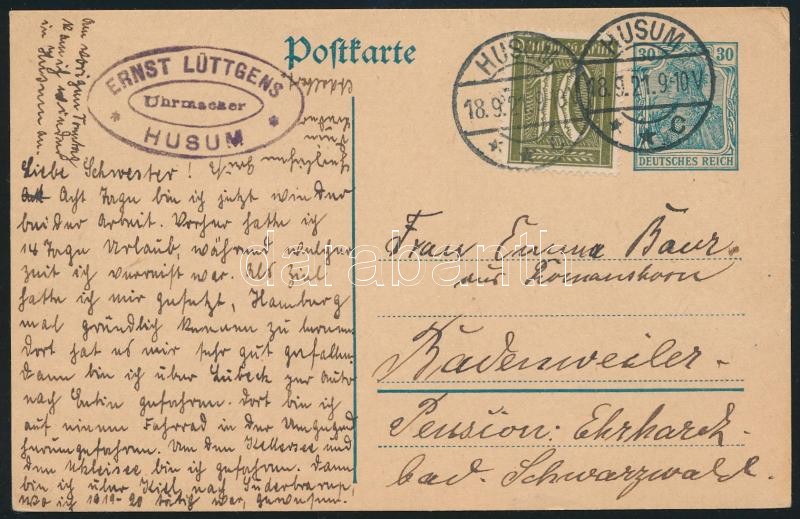 Postkarte
ERNST LÜTTGENS
Uhrmacher
* HUSUM *
HUSUM
18.9.21.9-10V
* * C
HUSUM
18.9.21.9-10V
* * C
30 30
DEUTSCHES REICH
Am vorigen Sonntag
kam ich wieder
in Husum an.
Liebe Schwester!
Acht Tage bin ich jetzt wieder
bei der Arbeit. Vorher hatte ich
14 Tage Urlaub, während welcher
Zeit ich verreist war. Als Ziel
hatte ich mir gesetzt, Hamburg
mal gründlich kennen zu lernen.
Dort hat es mir sehr gut gefallen.
Dann bin ich über Lübeck per Auto
nach Eutin gefahren. Dort bin ich
auf einem Fahrrad in der Umgegend
herumgefahren. Um den Kellersee und
den Ukleisee bin ich gefahren. Dann
bin ich über Kiel nach Süderbrarup,
wo ich 1919-20 tätig war, gewesen.
Frau Emma Baur.
aus Romanshorn
Badenweiler.
Pension: Ehrhardt
bad. Schwarzwald.
darabanth